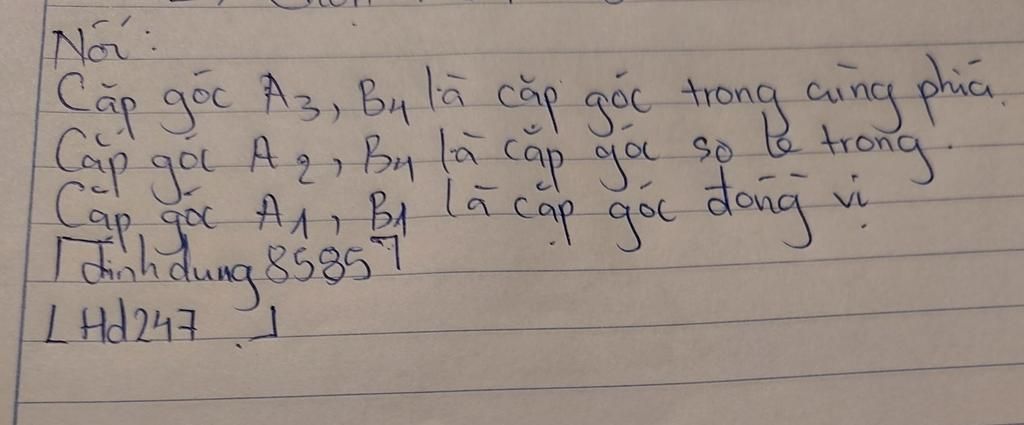 Nối:
Cặp góc A3, B4 là cặp góc trong cùng phía.
Cặp góc A2, B4 là cặp góc so le trong.
Cặp góc A1, B1 là cặp góc đồng vị
dinhdung8585
Hd247